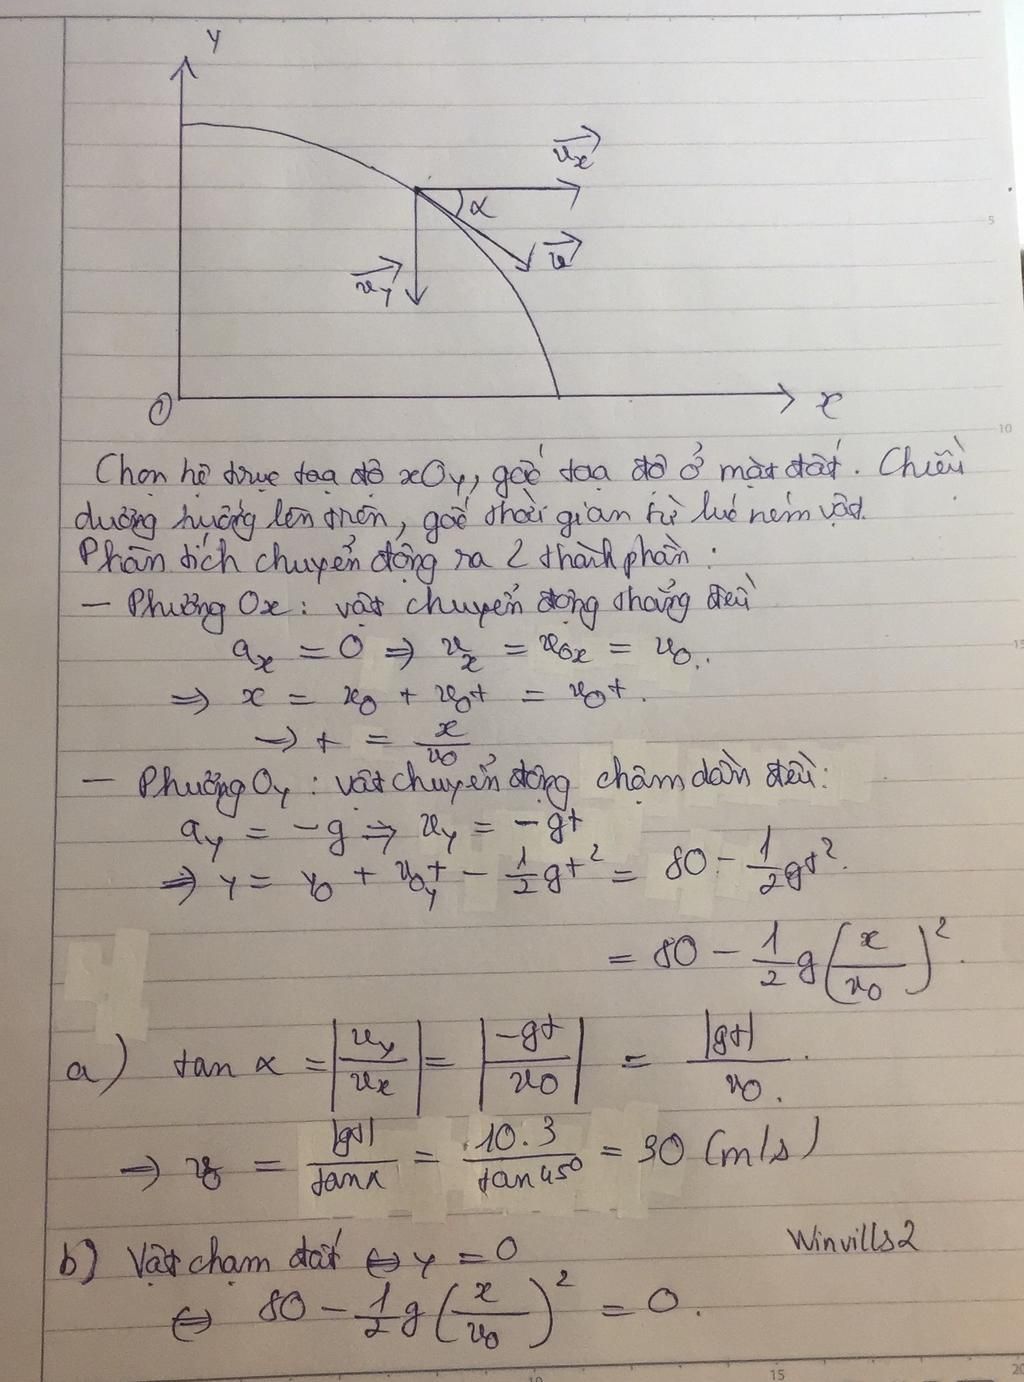 y
vx
α
v
vy
O
x
5
10
Chọn hệ trục tọa độ xOy, gốc tọa độ ở mặt đất. Chiều
dương hướng lên trên, gốc thời gian từ lúc ném vật.
Phân tích chuyển động ra 2 thành phần:
– Phương Ox: vật chuyển động thẳng đều
ax = 0 ⇒ vx = v0x = v0.
⇒ x = x0 + v0t = v0t.
→ t = x/v0
– Phương Oy: vật chuyển động chậm dần đều:
ay = -g ⇒ vy = -gt
⇒ y = y0 + v0yt - 1/2 gt² = 80 - 1/2 gt².
= 80 - 1/2 g(x/v0)².
a) tan α = |vy/vx| = |-gt/v0| = |gt|/v0.
⇒ v0 = |gt|/tanα = 10.3/tan45° = 30 (m/s)
Winvills2
b) Vật chạm đất ⇔ y = 0
⇔ 80 - 1/2 g(x/v0)² = 0.
10
15
20